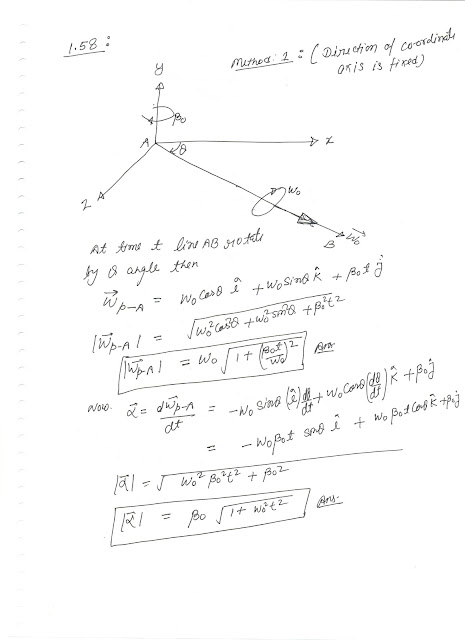 1.58 :
Method: 1 : ( Direction of coordinate
axis is fixed)
y
β₀
A
θ
x
z
ω₀
B
At time t line AB rotate
by θ angle then
ω⃗p-A = ω₀ cosθ î + ω₀ sinθ k̂ + β₀t ĵ
|ω⃗p-A| = √(ω₀² cos²θ + ω₀² sin²θ + β₀² t²)
|ω⃗p-A| = ω₀ √(1 + (β₀t/ω₀)²) Ans
Now. α⃗ = dω⃗p-A/dt = -ω₀ sinθ (î) dθ/dt + ω₀ cosθ (dθ/dt) k̂ + β₀ĵ
= -ω₀β₀t sinθ î + ω₀β₀t cosθ k̂ + β₀ĵ
|α⃗| = √(ω₀² β₀² t² + β₀²)
|α⃗| = β₀ √(1 + ω₀² t²) Ans-